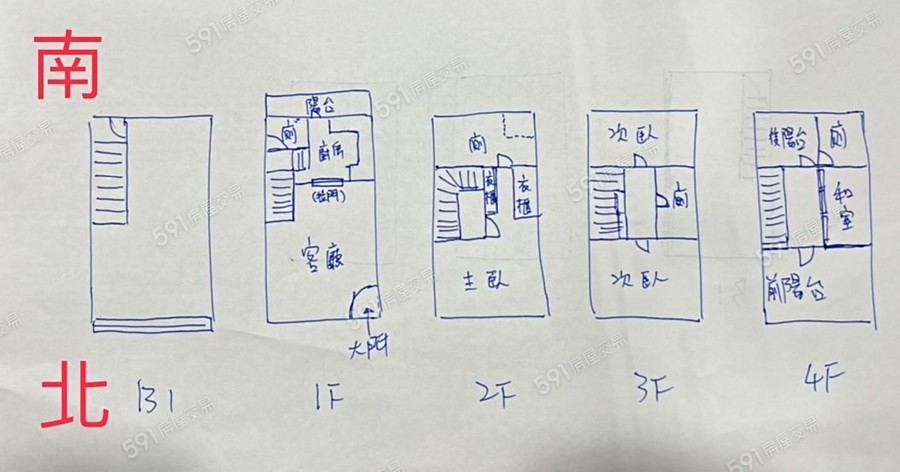 南
591房屋交易
591房屋交易
591房屋交易
591房屋交易
陽台
廁
廚房
(拉門)
客廳
大門
廁
衣櫃
衣櫃
主臥
次臥
廁
次臥
後陽台
廁
和室
前陽台
591房屋交易
591房屋交易
591房屋交易
北
B1
1F
2F
3F
4F
591房屋交易
591房屋交易
591房屋交易